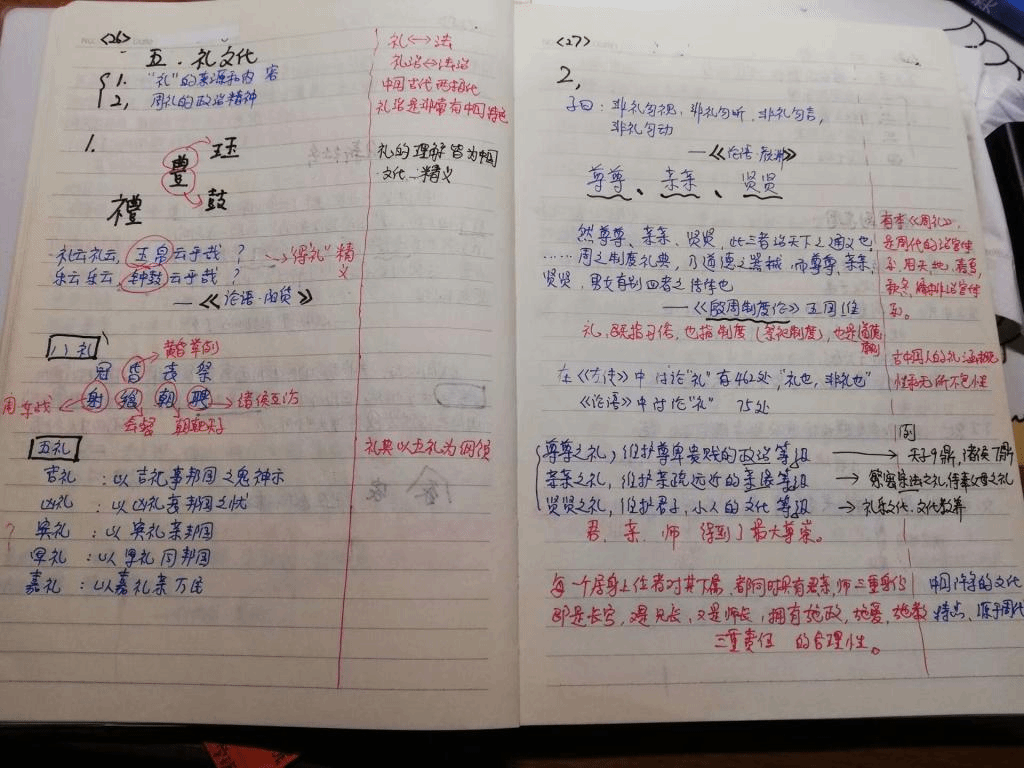 <26>
五.礼文化
1. "礼"的来源和内容
2, 周礼的政治精神
礼<->法
礼治<->法治
中国古代两相代
礼治是非常有中国特色
1.
豊
珏
鼓
禮
礼的理解皆为中国
文化一精义
礼云礼云,玉帛云乎哉?
乐云乐云,钟鼓云乎哉?
"得礼"精义
——《论语·阳货》
八礼
冠 昏 丧 祭
射 飨 朝 聘
诸侯互访
会餐
朝觐天子
五礼
礼典以五礼为纲领
吉礼:以吉礼事邦国之鬼神示
凶礼:以凶礼哀邦国之忧
? 宾礼:以宾礼亲邦国
军礼:以军礼同邦国
嘉礼:以嘉礼亲万民
<27>
2,
子曰:非礼勿视,非礼勿听,非礼勿言,
非礼勿动
——《论语·颜渊》
尊尊、亲亲、贤贤
然尊尊、亲亲、贤贤,此三者治天下之通义也
……周之制度礼典,乃道德之器械,而尊尊、亲亲、
贤贤,男女有别四者之结体也
——《殷周制度论》王国维
有本《周礼》,
是周代的治官体
系,用天地,春夏,
秋冬,编排治官体
系。
礼,既指习俗,也指制度(祭祀制度),也是道德
古中国人的礼,涵摄
性和无所不包性
在《左传》中讨论"礼"有462处"礼也,非礼也"
《论语》中讨论"礼" 75处
例
尊尊之礼,维护尊卑贵贱的政治等级 → 天子9鼎,诸侯7鼎
亲亲之礼,维护亲疏远近的亲缘等级 → 宗法之礼,侍奉父母之礼
贤贤之礼,维护君子,小人的文化等级 → 礼乐文化.文化教养
君,亲,师 得到了最大尊崇。
每一个居身上位者对其下属,都同时具有君亲,师三重身份
即是长官,又是兄长,又是师长,拥有施政,施爱,施教
三重责任 的合理性。
中国传统的文化
特点,源于周代